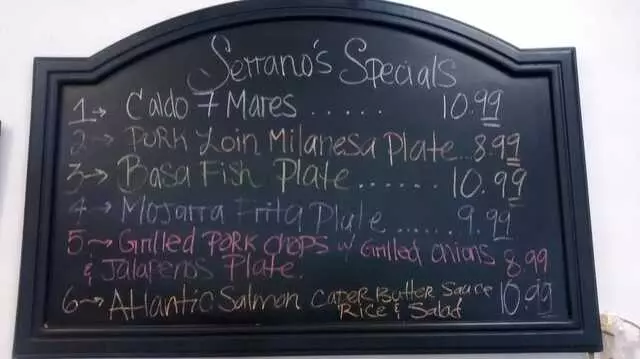 Serrano's Specials
1→ Caldo 7 Mares ..... 10.99
2→ Pork Loin Milanesa Plate... 8.99
3→ Basa Fish Plate...... 10.99
4→ Mojarra Frita Plate...... 9.99
5→ Grilled Pork Chops w/ Grilled onions
& Jalapeños Plate. 8.99
6→ Atlantic Salmon Caper Butter Sauce
Rice & Salad 10.99